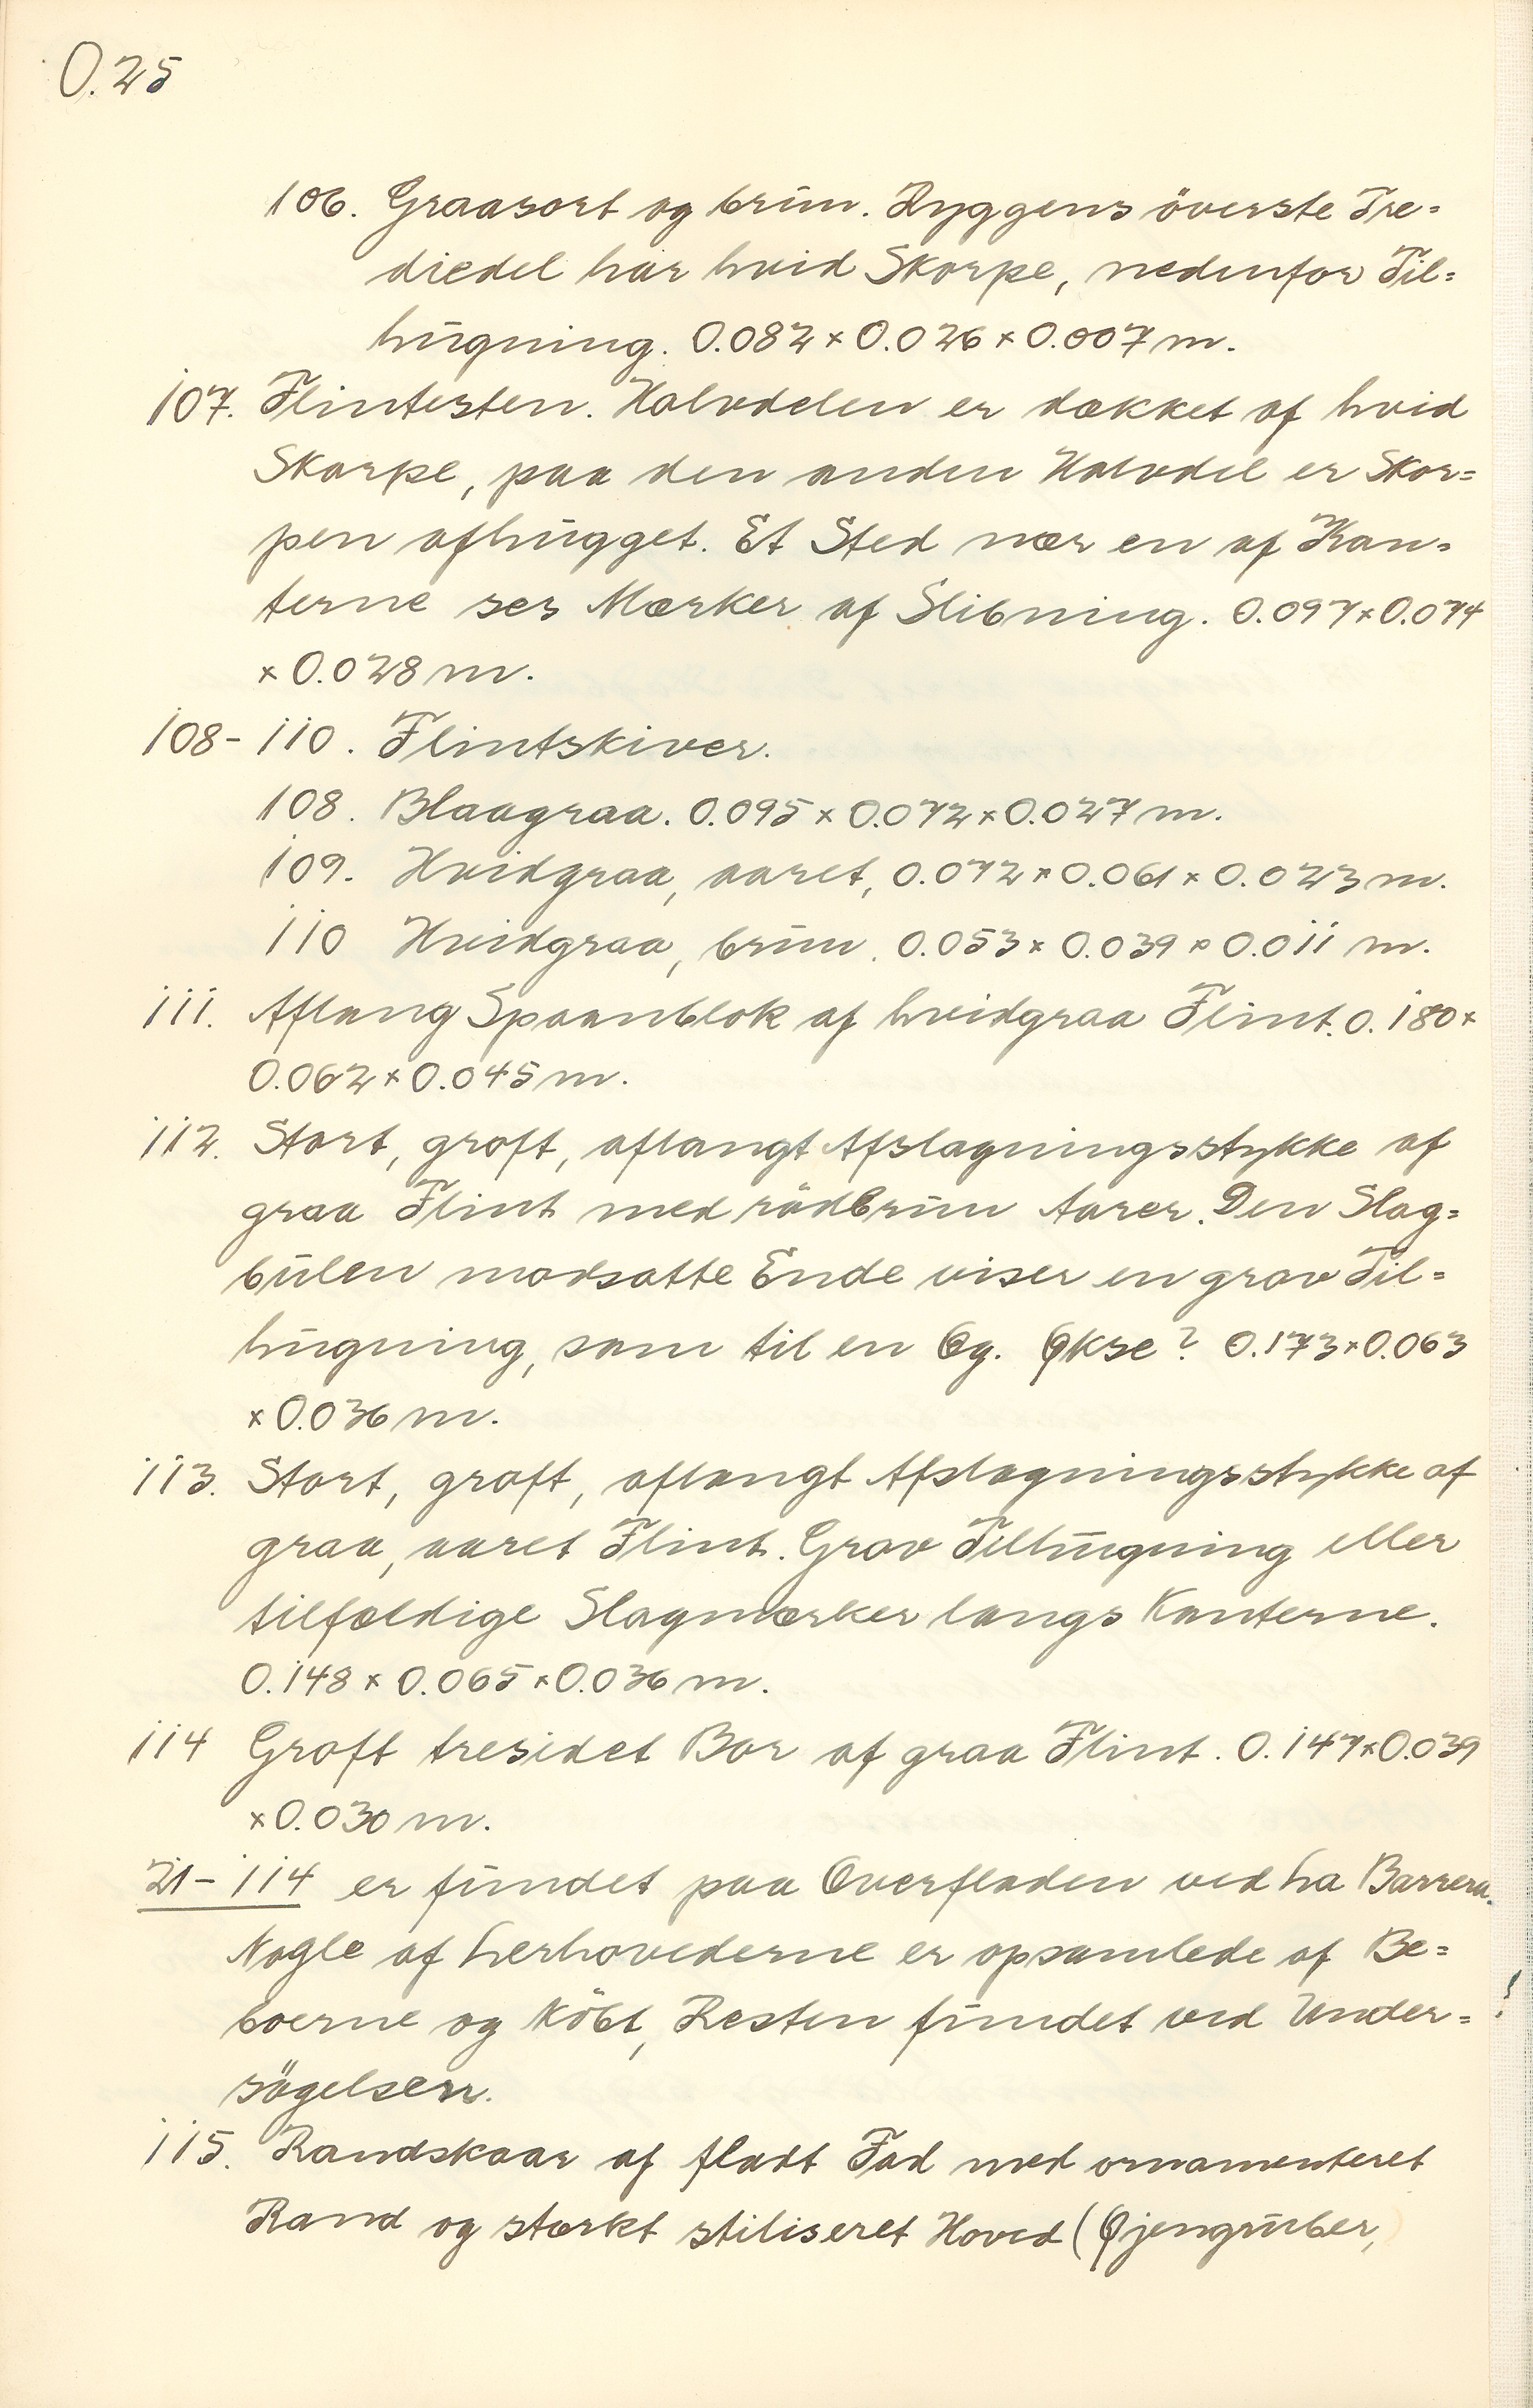 0.25
106. Graasort og brun. Ryggens överste Tre=
diedel har hvid Skorpe, nedenfor Til=
hugning. 0.082 × 0.026 × 0.007 m.
107. Flintesten. Halvdelen er dækket af hvid
Skorpe, paa den anden Halvdel er Skor=
pen afhugget. Et Sted nær en af Kan=
terne ses Mærker af Slibning. 0.097 × 0.074
× 0.028 m.
108-110. Flintskiver.
108. Blaagraa. 0.095 × 0.072 × 0.027 m.
109. Hvidgraa, aaret, 0.072 × 0.061 × 0.023 m.
110 Hvidgraa, brun. 0.053 × 0.039 × 0.011 m.
111. Aflang Spaanblok af hvidgraa Flint. 0.180 ×
0.062 × 0.045 m.
112. Stort, groft, aflangt Afslagningsstykke af
graa Flint med rödbrun Aarer. Den Slag=
bulen modsatte Ende viser en grov Til=
hugning, som til en Eg. Økse? 0.173 × 0.063
× 0.036 m.
113. Stort, groft, aflangt Afslagningsstykke af
graa, aaret Flint. Grov Tilhugning eller
tilfældige Slagmærker langs Kanterne.
0.148 × 0.065 × 0.036 m.
114 Groft tresidet Bor af graa Flint. 0.147 × 0.039
× 0.030 m.
21-114 er fundet paa Overfladen ved La Barrera.
Nogle af Lerhovederne er opsamlede af Be=
boerne og Köbt, Resten fundet ved Under=
sögelsen.
115. Randskaar af fladt Fad med ornamenteret
Rand og stærkt stiliseret Hoved (Øjengruber,